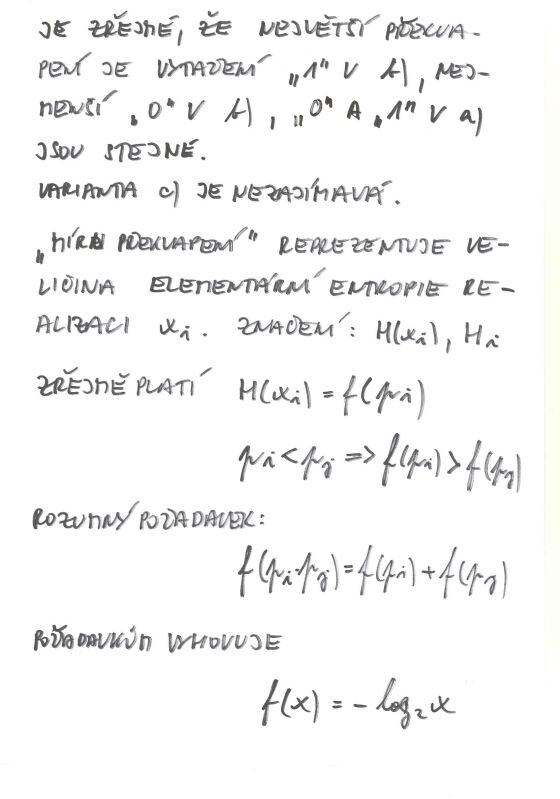 JE ZŘEJMÉ, ŽE NEJVĚTŠÍ PŘEKVA-
PENÍ JE VYTAŽENÍ „1" V b), NEJ-
MENŠÍ „0" V b), „0" A „1" V a)
JSOU STEJNÉ.
VARIANTA c) JE NEZAJÍMAVÁ.
„MÍRU PŘEKVAPENÍ" REPREZENTUJE VE-
LIČINA ELEMENTÁRNÍ ENTROPIE RE-
ALIZACI xi. ZNAČENÍ: H(xi), Hi
ZŘEJMĚ PLATÍ H(xi) = f(pi)
pi < pj => f(pi) > f(pj)
ROZUMNÝ POŽADAVEK:
f(pi·pj) = f(pi) + f(pj)
POŽADAVKŮM VYHOVUJE
f(x) = - log₂ x